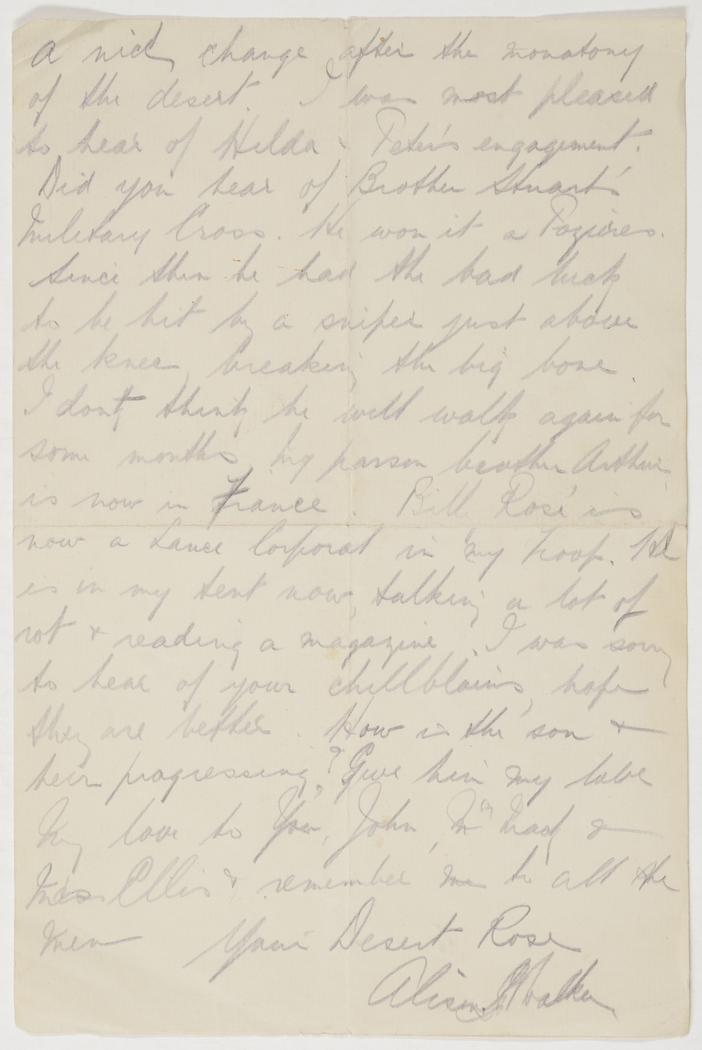 a nice change after the monotony
of the desert. I was most pleased
to hear of Hilda & Peter's engagement.
Did you hear of Brother Stuart's
Military Cross. He won it a Pozieres.
Since then he had the bad luck
to be hit by a sniper just above
the knee, breaking the big bone.
I dont think he will walk again for
some months, my parson brother Arthur
is now in France. Bill Rose is
now a Lance Corporal in my troop. He
is in my tent now, talking a lot of
rot & reading a magazine. I was sorry
to hear of your chillblains, hope
they are better. How is the son &
heir progressing? Give him my love
My love to You, John, &
Miss Ellis & remember me to all the
men Your Desert Rose
Walker